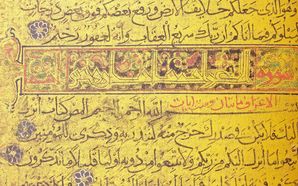 وهو الذي جعلكم خلايف الارض ورفع بعضكم فوق بعض درجات
ليبلوكم في ما اتاكم ان ربك سريع العقاب وانه لغفور رحيم
سورة
الاعراف مائتان وست ايات
بسم الله الرحمن الرحيم المص كتاب انزل
اليك فلا يكن في صدرك حرج منه لتنذر به وذكرى للمؤمنين
اتبعوا ما انزل اليكم من ربكم ولا تتبعوا من دونه اولياء قليلا ما تذكرون